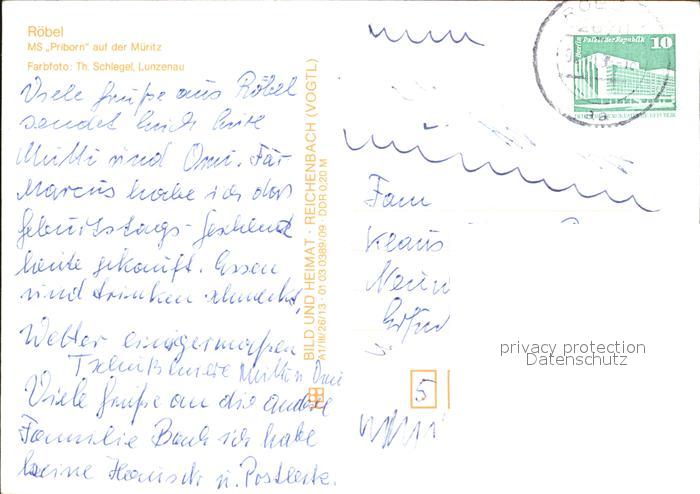 Röbel
MS „Priborn“ auf der Müritz
Farbfoto: Th. Schlegel, Lunzenau
Viele Grüße aus Röbel
sendet Euch Eure
Mutti und Omi. Für
Marcus habe ich das
Geburtstags-Geschenk
heute gekauft. Essen
und trinken schmeckt,
Wetter einigermaßen
Tschüß Eure Mutti u Omi
Viele Grüße an die andere
Familie ich habe
keine Hausnr u. Postleitz.
BILD UND HEIMAT · REICHENBACH (VOGTL)
A1/III/26/13 · 01 03 0389/09 · DDR 0,20 M
RÖBEL
Berlin, Palast der Republik
10
DEUTSCHE DEMOKRATISCHE REPUBLIK
aa
Fam
Klaus
5
privacy protection
Datenschutz